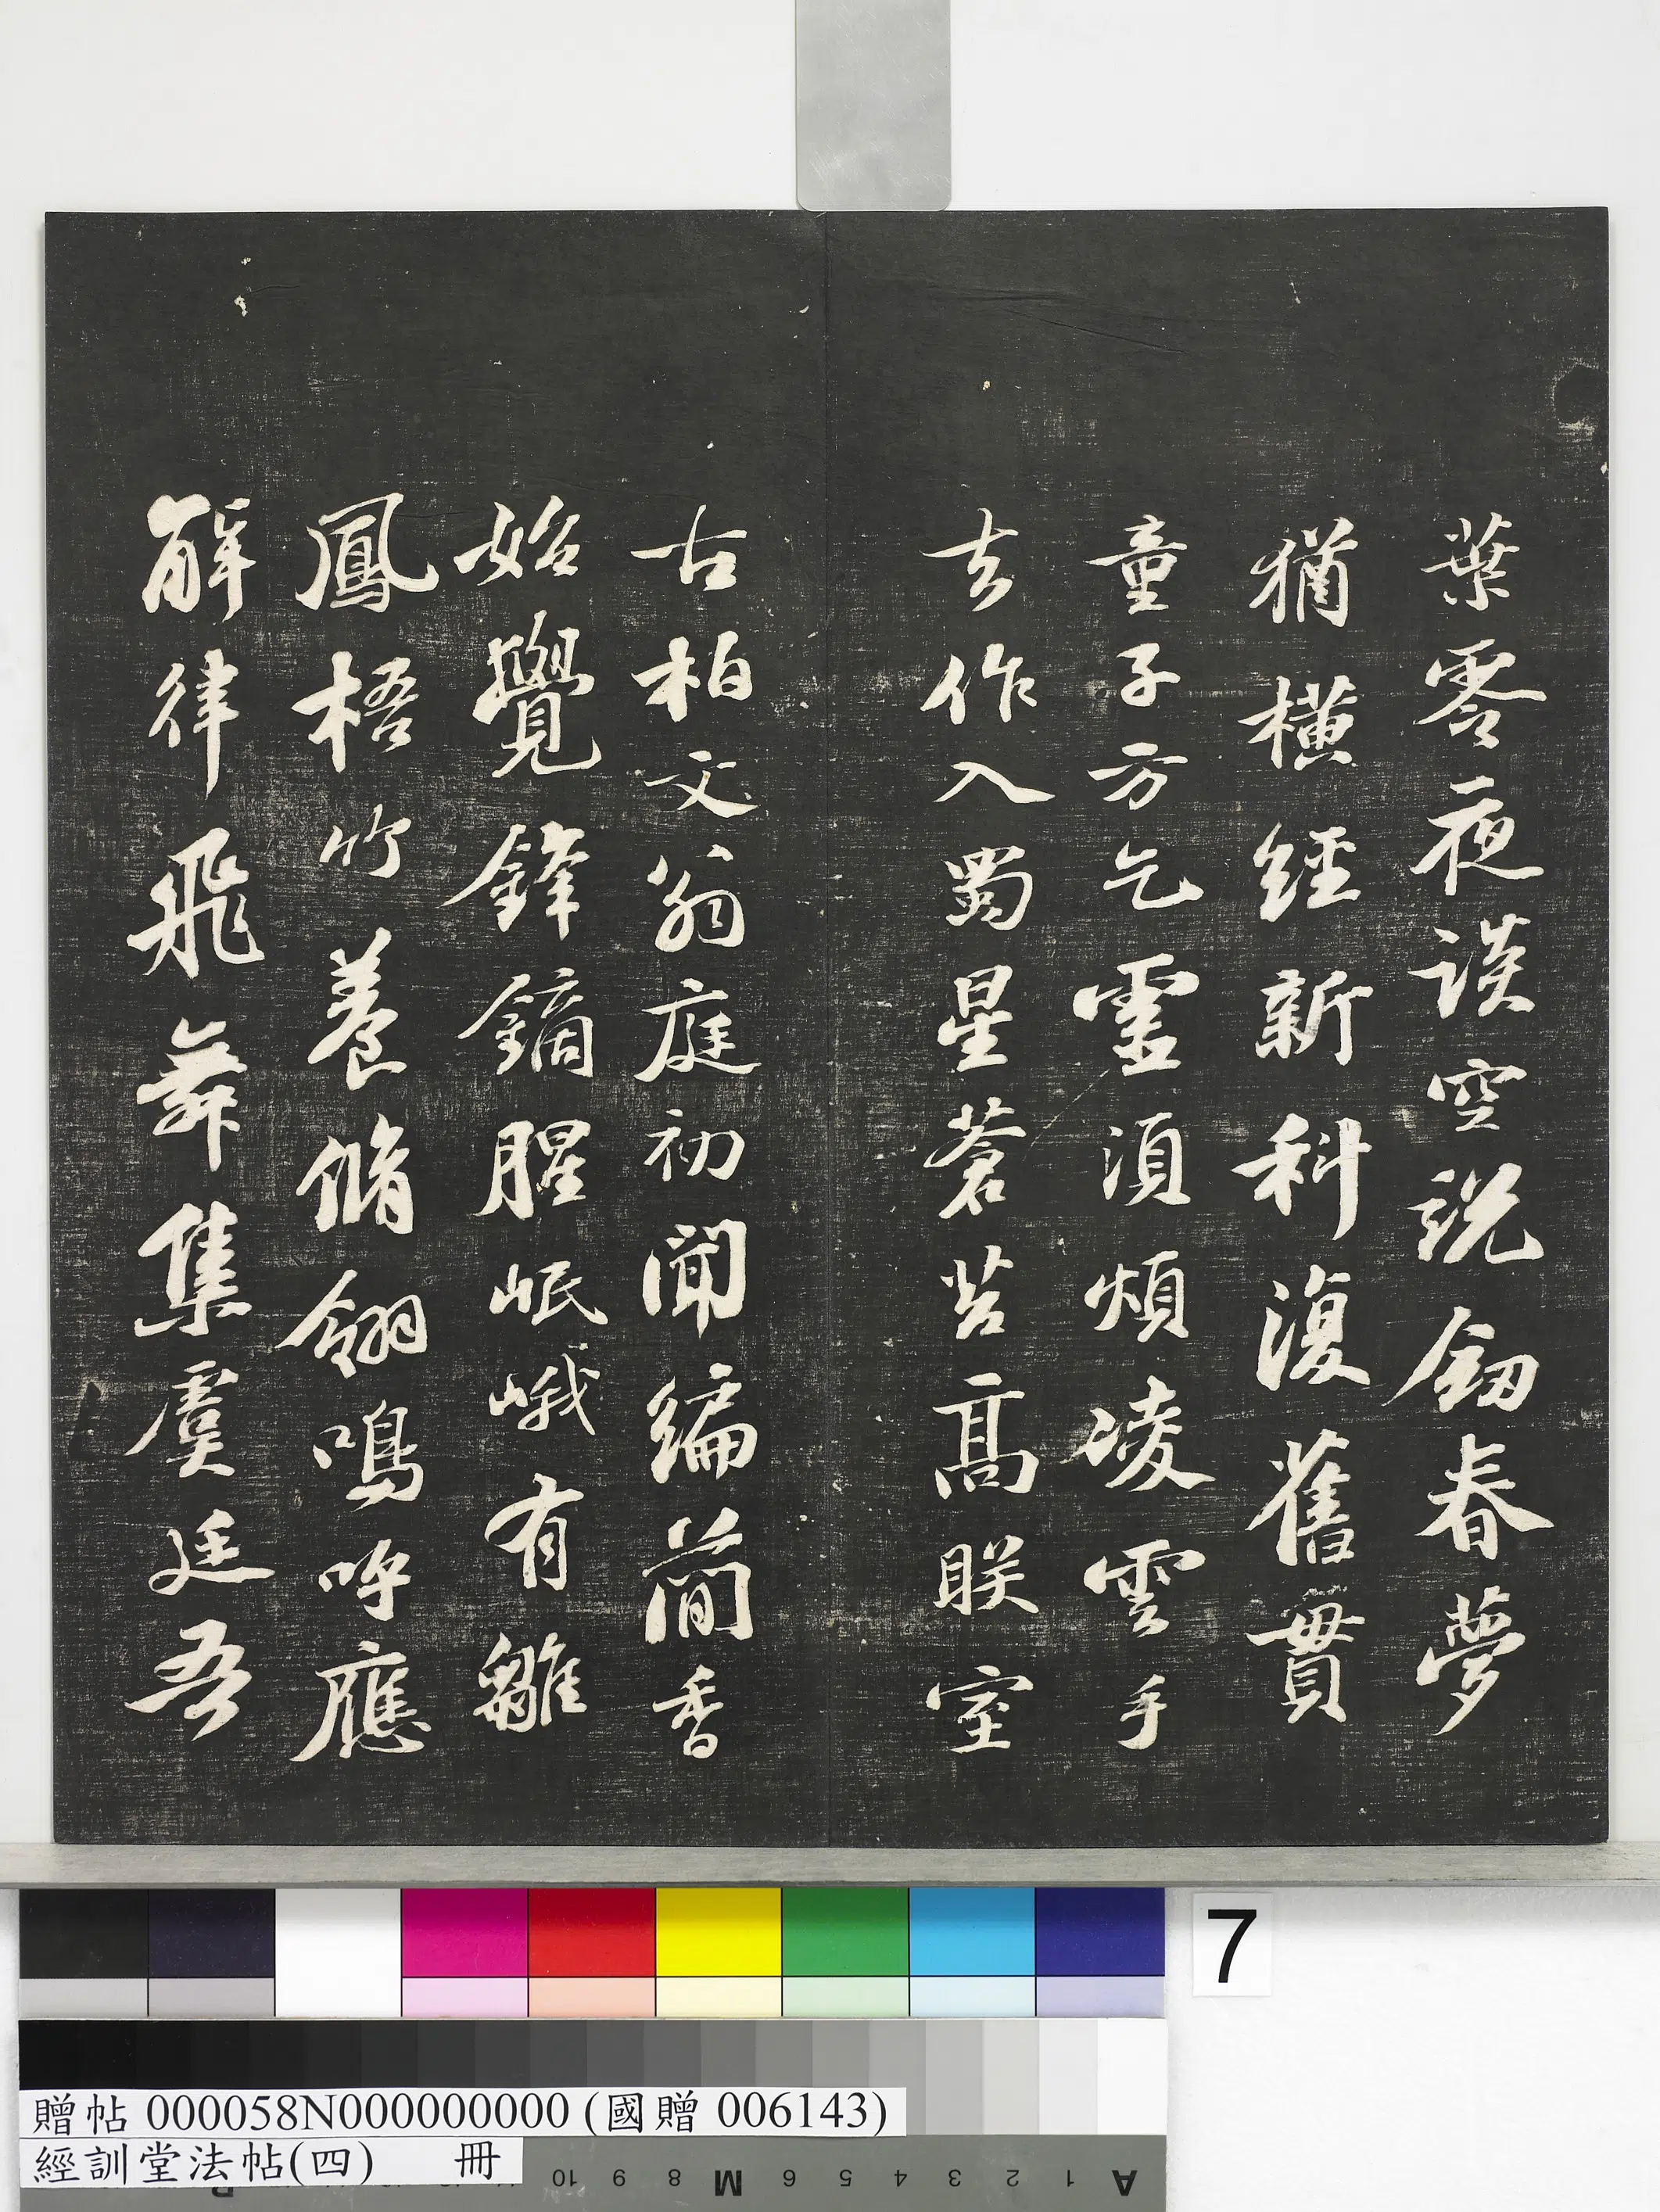 葉零夜談空說劍春夢
猶橫經新科復舊貫
童子方乞靈須煩凌雲手
去作入蜀星蒼苔高朕室
古柏文翁庭初聞編簡香
始覺鋒鏑腥岷峨有雛
鳳梧竹養脩翎鳴呼應
解律飛舞集虞廷吾
7
贈帖 000058N000000000 (國贈 006143)
經訓堂法帖(四) 冊
10 9 8 M 6 5 4 3 2 1 A